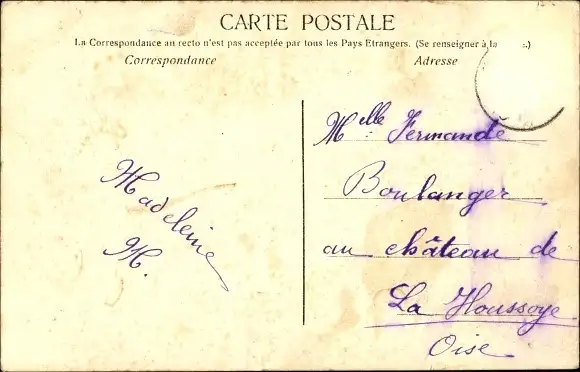 CARTE POSTALE
La Correspondance au recto n'est pas acceptée par tous les Pays Etrangers. (Se renseigner à la
Correspondance
Adresse
Madeleine
M.
Melle Fernande
Boulanger
au château de
La Houssoye
Oise